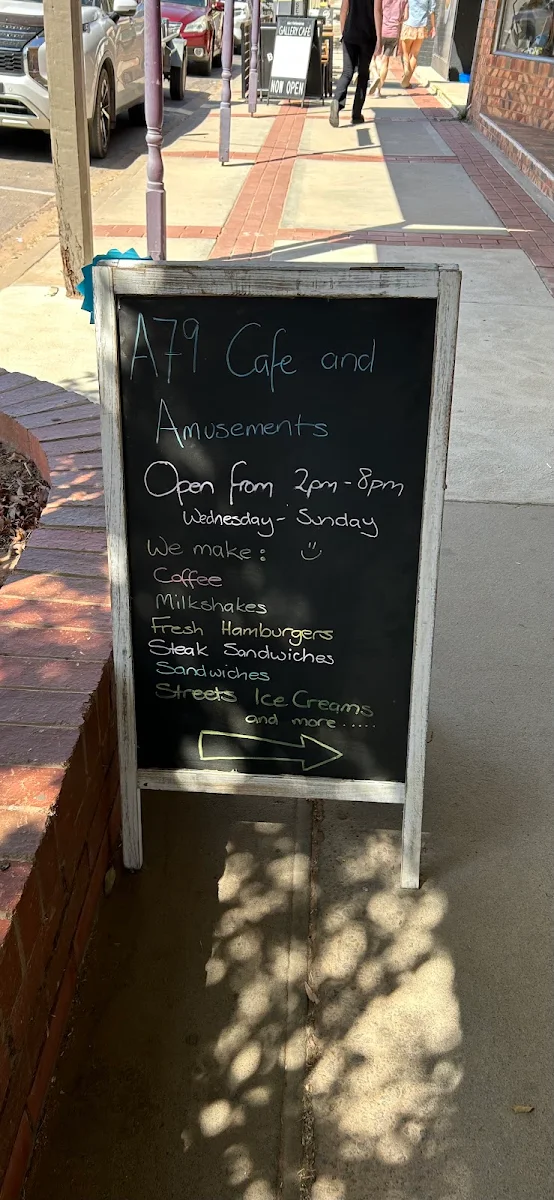 GALLERY CAFÉ
NOW OPEN
A79 Cafe and
Amusements
Open from 2pm - 8pm
Wednesday - Sunday
We make: :)
Coffee
Milkshakes
Fresh Hamburgers
Steak Sandwiches
Sandwiches
Streets Ice Creams
and more.....